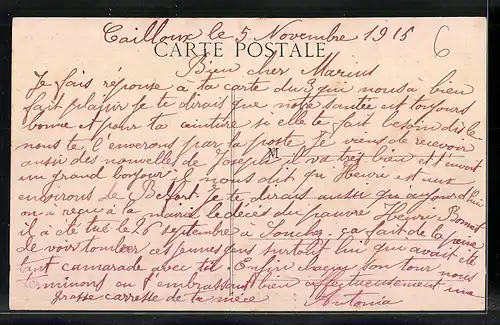 Cailloux le 5 Novembre 1915
6
CARTE POSTALE
Bien cher Marius
Je fais réponse à ta carte du 3 qui nous a bien
fait plaisir je te dirais que notre santée est toujours
bonne et pour ta ceinture si elle te fait besoin dis le
nous te l'enverons par la poste Je viens de recevoir
aussi des nouvelles de Joseph il va très bien et t'envoit
un grand bonjour il nous dit qu'Henri est aux
environs de Belfort. Je te dirais aussi qu'aujourd'hui
on a reçu à la mairie le décès du pauvre Henri Bonnet
il a été tué le 26 septembre à Souchez ça fait de la peine
de voir tomber ces jeunes gens surtout lui qui avait été
tant camarade avec toi Enfin chacun son tour nous
terminons en t'embrassant bien affectueusement une
grosse carresse de ta nièce Antonia
M